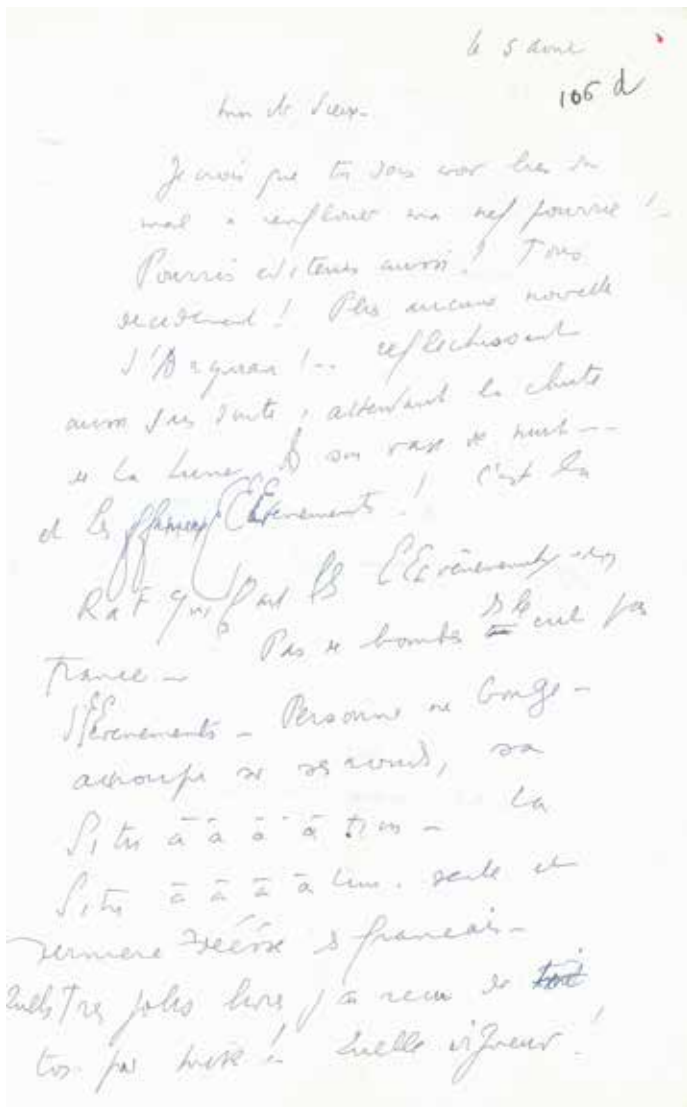 le 5 aout
106 d
mon cher Vieux -
Je crois que tu dois avoir bien du
mal a renflouer ma nef pourrie ! -
Pourris editeurs aussi ! Tous
decidement ! Plus aucune nouvelle
d'A ! -- reflechissant
aussi sans doute, attendant la chute
de la Lune, son vase de nuit --
et les fffameux EEEvenements ! c'est la
RAF qui fait les EEEvenements en
France - Pas de bombes de cul pas
d'EEEvenements - Personne ne bouge -
accroupi sur ses ronds, sa
Situ ā ā ā ā tion - La
Situ ā ā ā ā tion. seule et
derniere Déésse des francais -
Quels Tres jolis livres j'ai recu de
toi par !- Quelle vigueur !